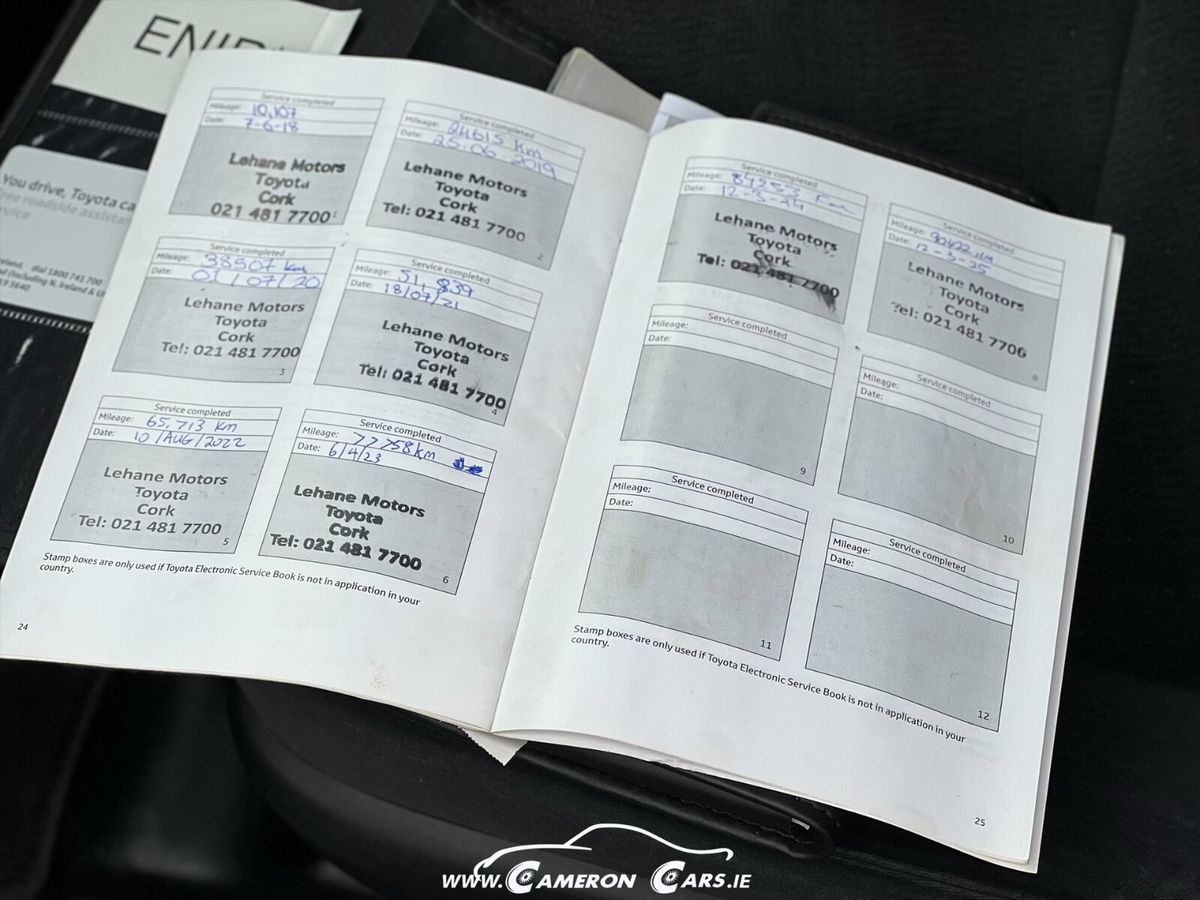 You drive, Toyota ca
free roadside assistan
dial 1800 741 700
Service completed
Mileage: 10,107
Date: 7-6-18
Lehane Motors
Toyota
Cork
021 481 7700
1
Service completed
Mileage: 24615 Km
Date: 25.06.2019
Lehane Motors
Toyota
Cork
Tel: 021 481 7700
2
Service completed
Mileage: 38507 Km
Date: 01/07/20
Lehane Motors
Toyota
Cork
Tel: 021 481 7700
3
Service completed
Mileage: 51,839
Date: 18/07/21
Lehane Motors
Toyota
Cork
Tel: 021 481 7700
4
Service completed
Mileage: 65,713 Km
Date: 10/AUG/2022
Lehane Motors
Toyota
Cork
Tel: 021 481 7700
5
Service completed
Mileage: 77758km
Date: 6/4/23
Lehane Motors
Toyota
Cork
Tel: 021 481 7700
6
Stamp boxes are only used if Toyota Electronic Service Book is not in application in your
country.
24
Service completed
Mileage: 84253 Km
Date: 12-3-24
Lehane Motors
Toyota
Cork
Tel: 021 481 7700
Service completed
Mileage: 90422 KM
Date: 12-3-25
Lehane Motors
Toyota
Cork
Tel: 021 481 7700
8
Service completed
Mileage:
Date:
9
Service completed
Mileage:
Date:
10
Service completed
Mileage:
Date:
11
Service completed
Mileage:
Date:
12
Stamp boxes are only used if Toyota Electronic Service Book is not in application in your
country.
25
www.Cameron Cars.ie